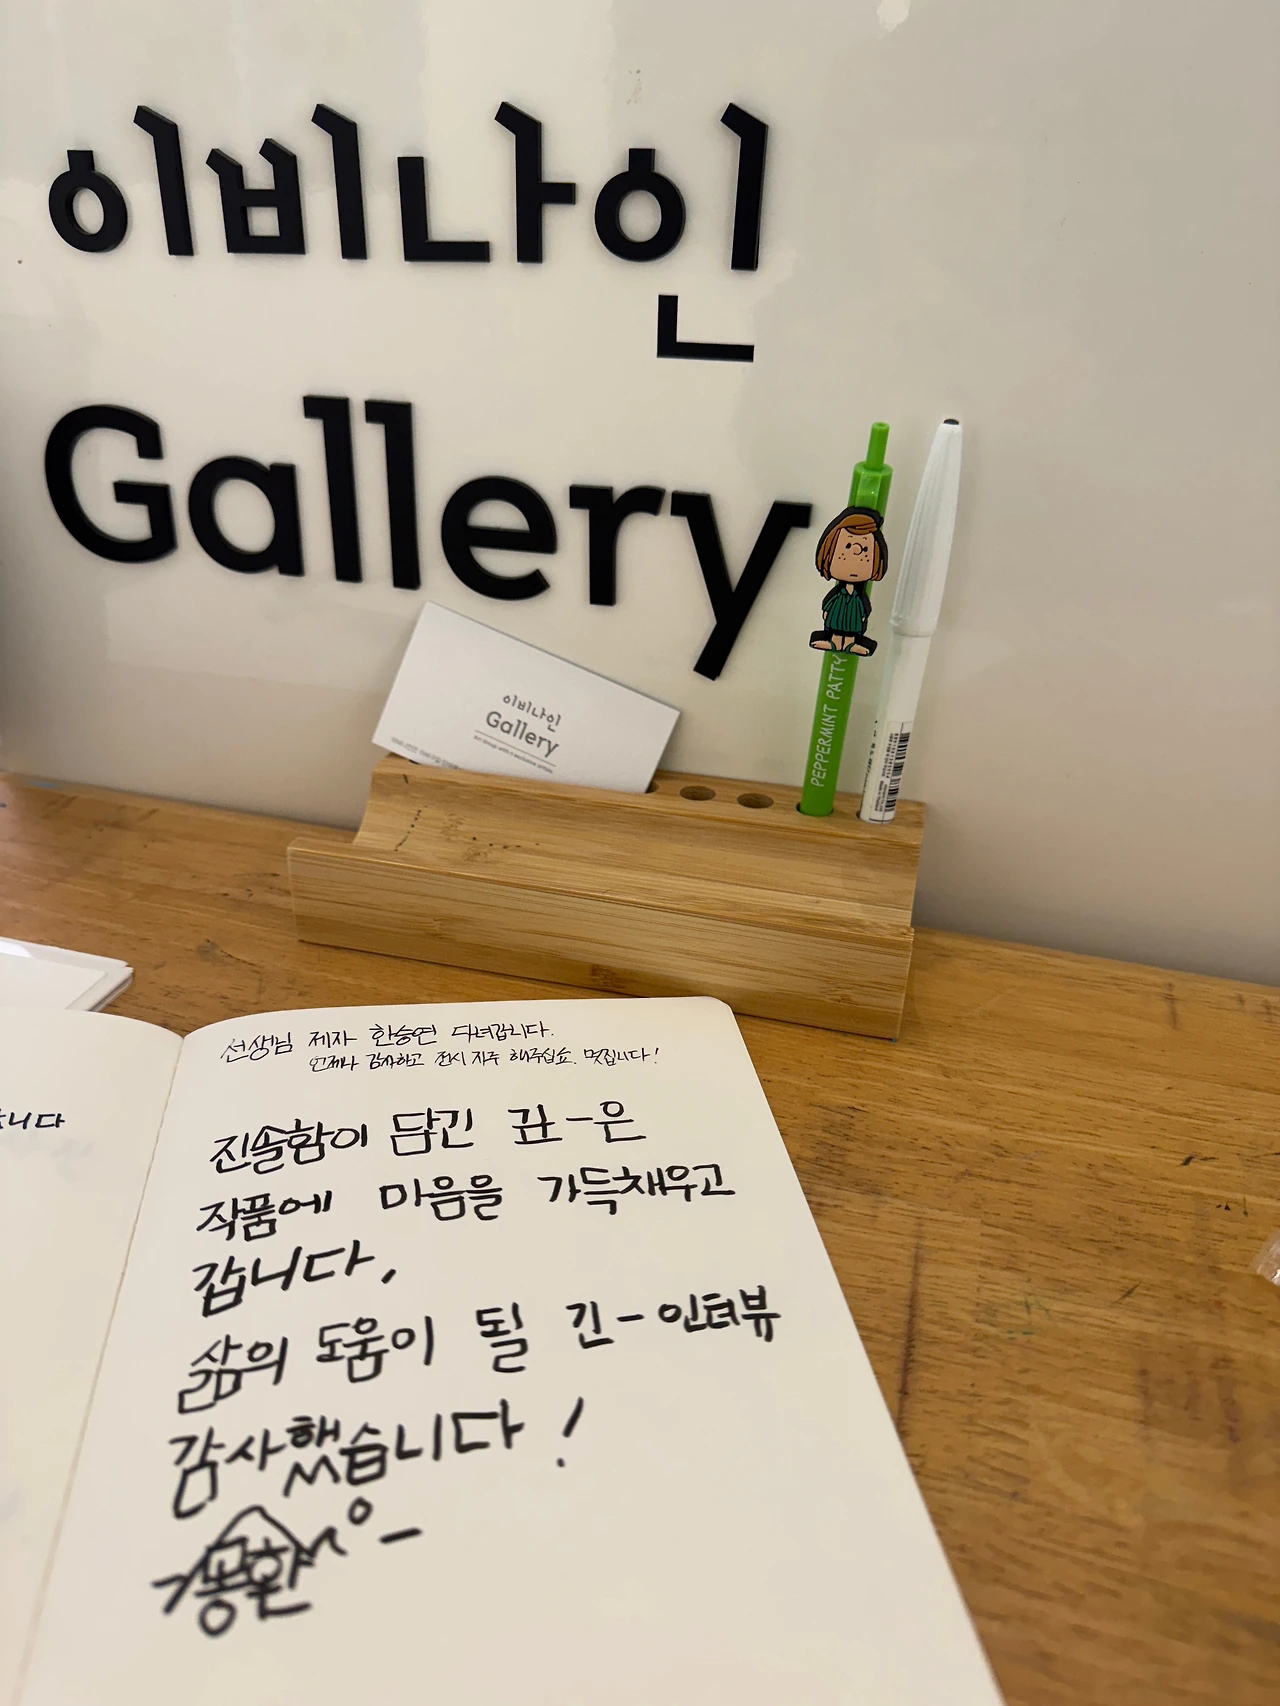 이비나인
Gallery
이비나인
Gallery
PEPPERMINT PATTY
선생님 제자 한승연 다녀갑니다.
언제나 감사하고 전시 자주 해주십쇼. 멋집니다!
진솔함이 담긴 귚-은
작품에 마음을 가득채우고
갑니다,
삶의 도움이 될 긴-인터뷰
감사했습니다!
니다